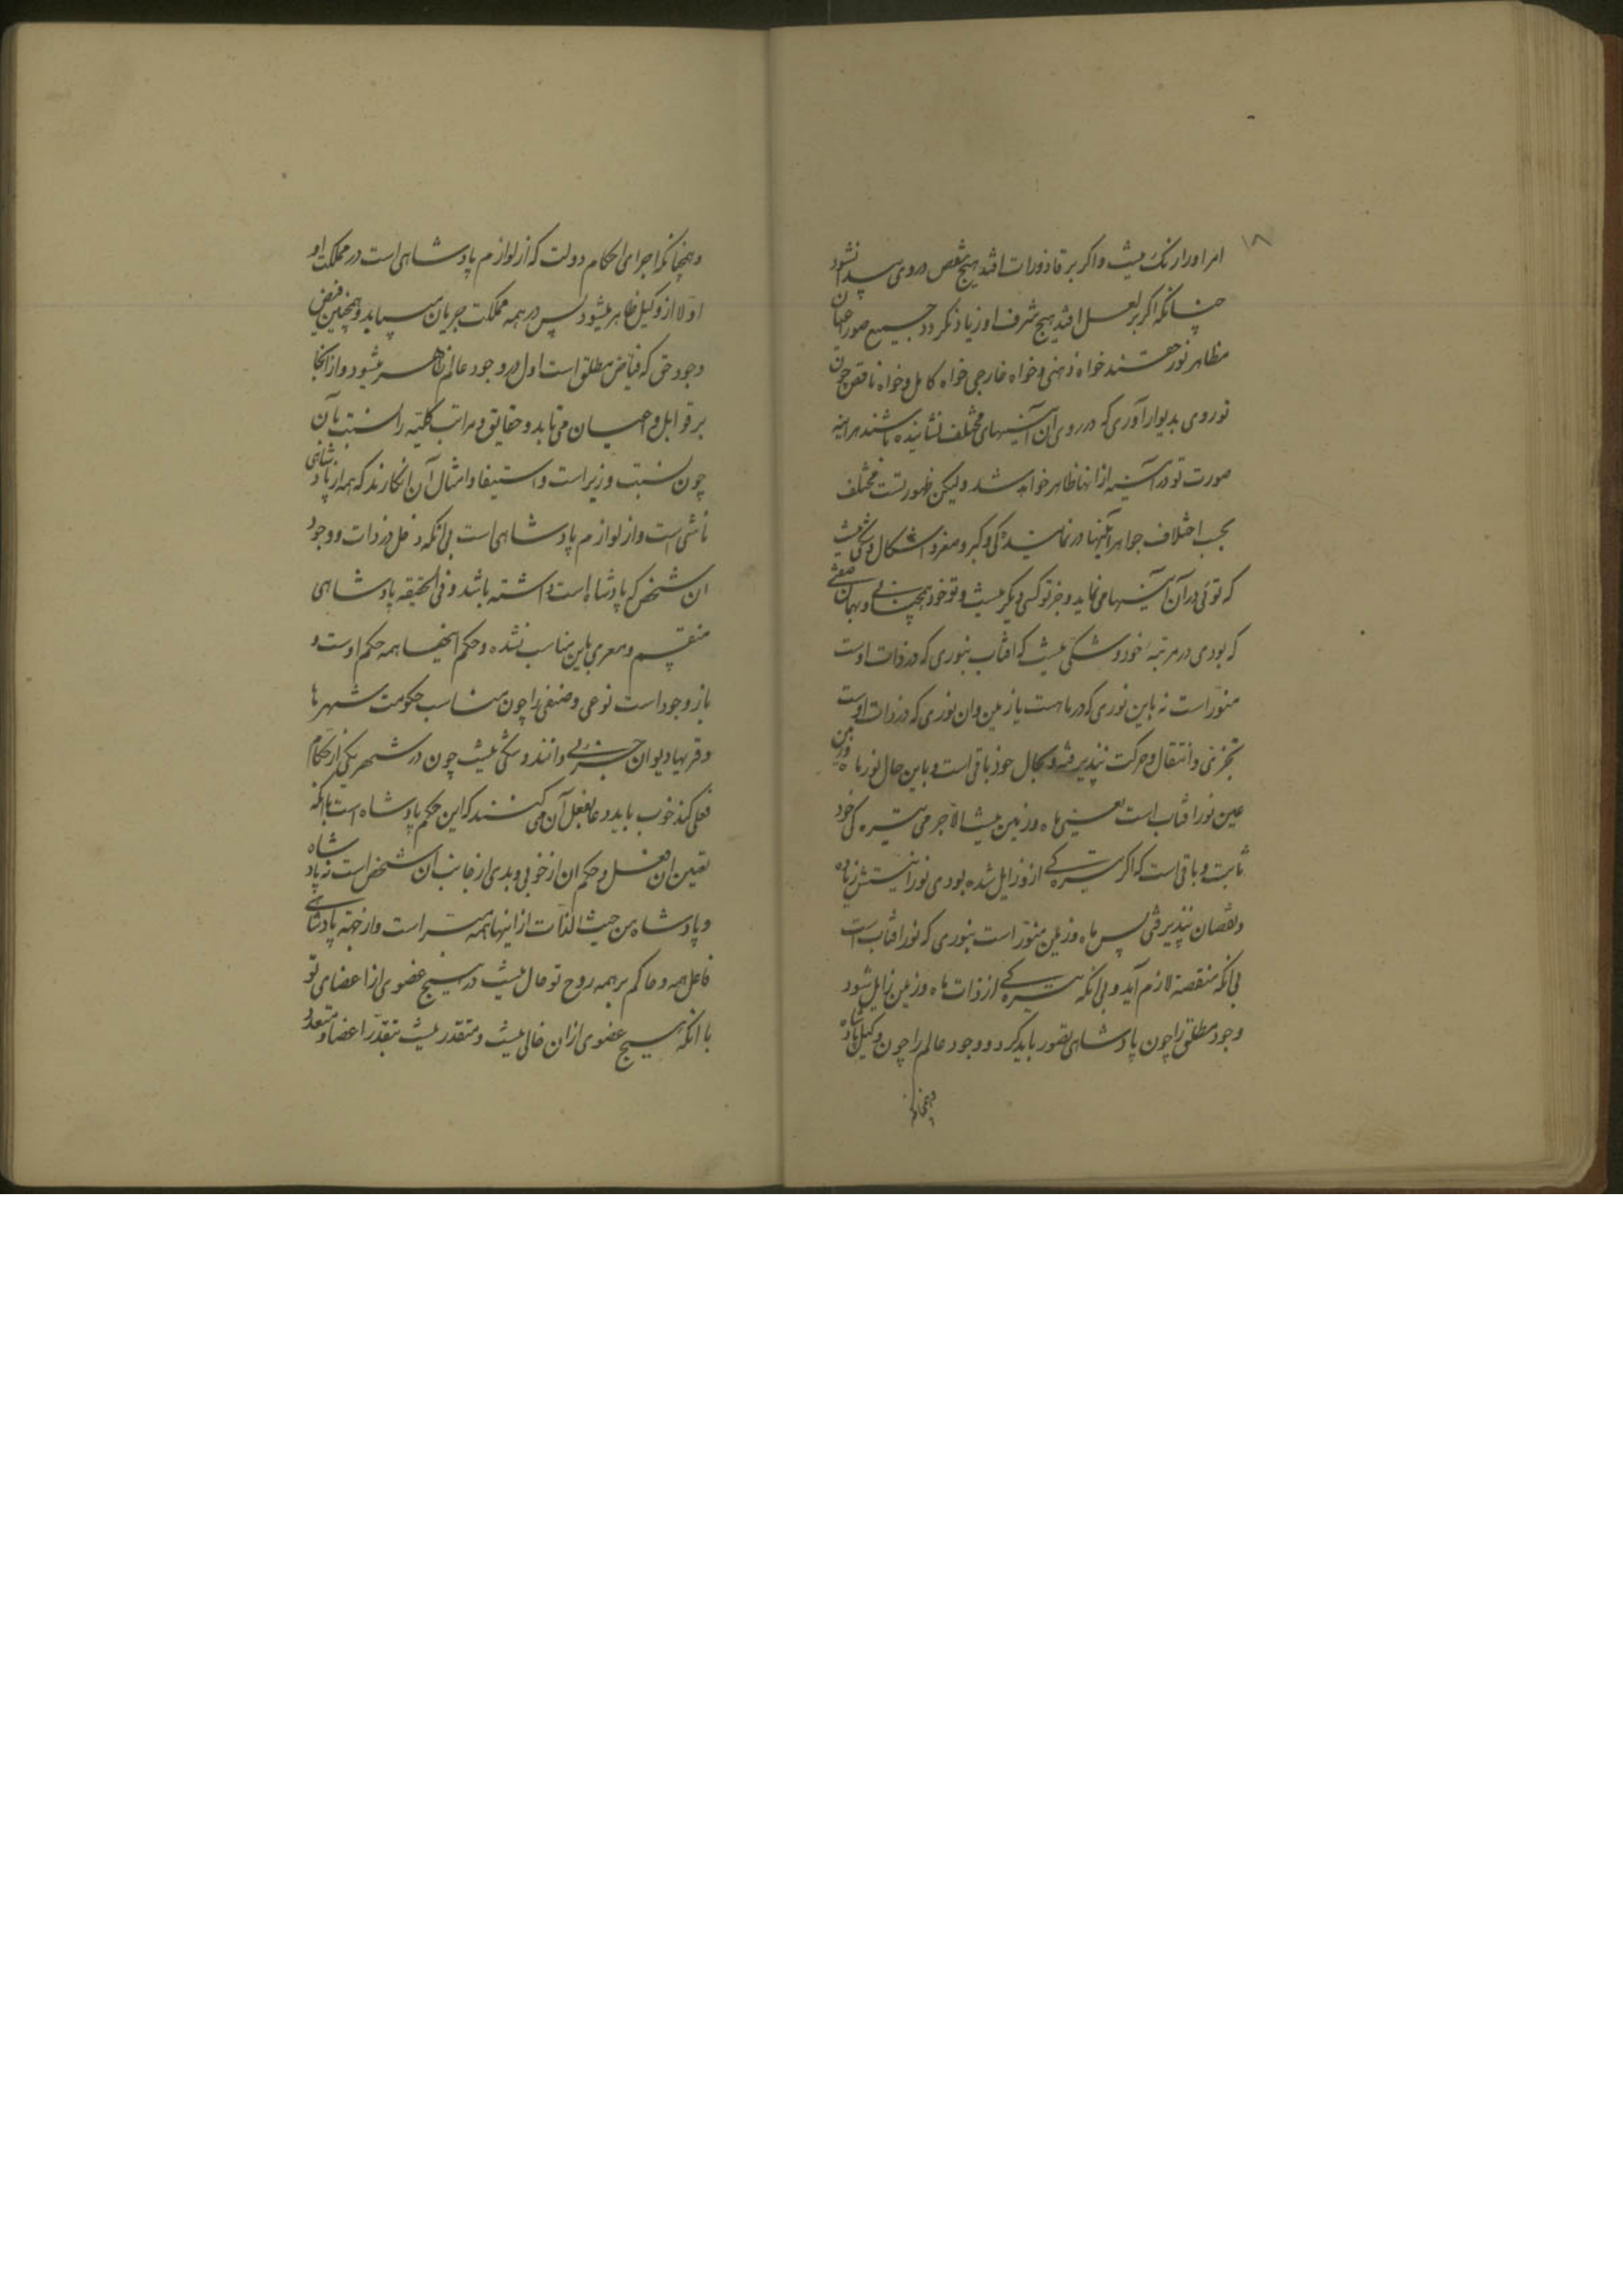 ۱۸
امر اورا رنک نیست و اکر بر قاذورات افتد هیچ نقص در وی پیدا نشود
چنانکه اکر بر لعل افتد هیچ شرف او زیاد نکردد جمیع صور اعیان
مظاهر نور حق هستند خواه ذهنی و خواه خارجی خواه کامل و خواه ناقص چون
تو روی بدیوار آوری که در روی آن آینهای مختلف نشانیده باشند هراینه
صورت تو در آینه از انها ظاهر خواهد شد ولیکن ظهور تست مختلف
بحسب اختلاف جواهر آینها در نمایندکی و کبر و صغر و اشکال و شکی نیست
که توئی در آن آینها می نماید و جز تو کسی دیکر نیست و تو خود همچنانی و بهمان صفتی
که بودی در مرتبه خود و شکی نیست که افتاب بنوری که در ذات اوست
منور است نه باین نوری که در ماهست یا زمین وان نوری که در ذات اوست
تجزی و انتقال و حرکت نپذیرفته و بکمال خود باقی است و باین حال نور ماه و زمین
عین نور افتاب است یعنی ماه و زمین بیشا لاجرمی تیره کی خود
ثابت و باقی است که اکر تیره کی از و زایل شده بودی نورانیتش زیاده
و نقصان نپذیرفتی پس ماه و زمین منور است بنوری که نور افتاب است
بی انکه منقصة لازم آید و بی انکه تیره کی از ذات ماه و زمین زایل شود
وجود مطلق را چون پادشاهی تصور باید کرد و وجود عالم را چون وکیل پادشاه
وهمچنانکه
وهمچنانکه اجرای احکام دولت که از لوازم پادشاهی است در مملکت او
اولا از وکیل ظاهر میشود پس در همه مملکت جریان می یابد و همچنین فیض
وجود حق که فیاض مطلق است اول در وجود عالم ظاهر میشود و از انجا
بر قوابل و اعیان می تابد و حقایق و مراتب کلیه را نسبت بآن
چون نسبت وزیر است و استیفا و امثال آن انکارند که همه از پادشاهی
ناشی است و از لوازم پادشاهی است بی انکه دخل در ذات و وجود
ان شخص که پادشاه است داشته باشد و فی الحقیقه پادشاهی
منقسم و معری باین مناسب نشده و حکم اینها همه حکم اوست و
باز وجودات نوعی و صنفی را چون مناسب حکومت شهرها
و قریها دیوان جزئی دانند و شکی نیست چون در شهر یکی از حکام
فعلی کند خوب یا بد رعایا بفعل آن می کنند که این حکم پادشاه است با انکه
تعین ان فعل و حکم ان از خوبی و بدی از جانب ان شخص است نه پادشاه
و پادشاه من حیث الذات از اینها همه مبراست و از جهة پادشاهی
فاعل همه و حاکم بر همه روح تو حال نیست در هیچ عضوی از اعضای تو
با انکه هیچ عضوی ازان خالی نیست و متقدر نیست بتقدر اعضا و متعدد